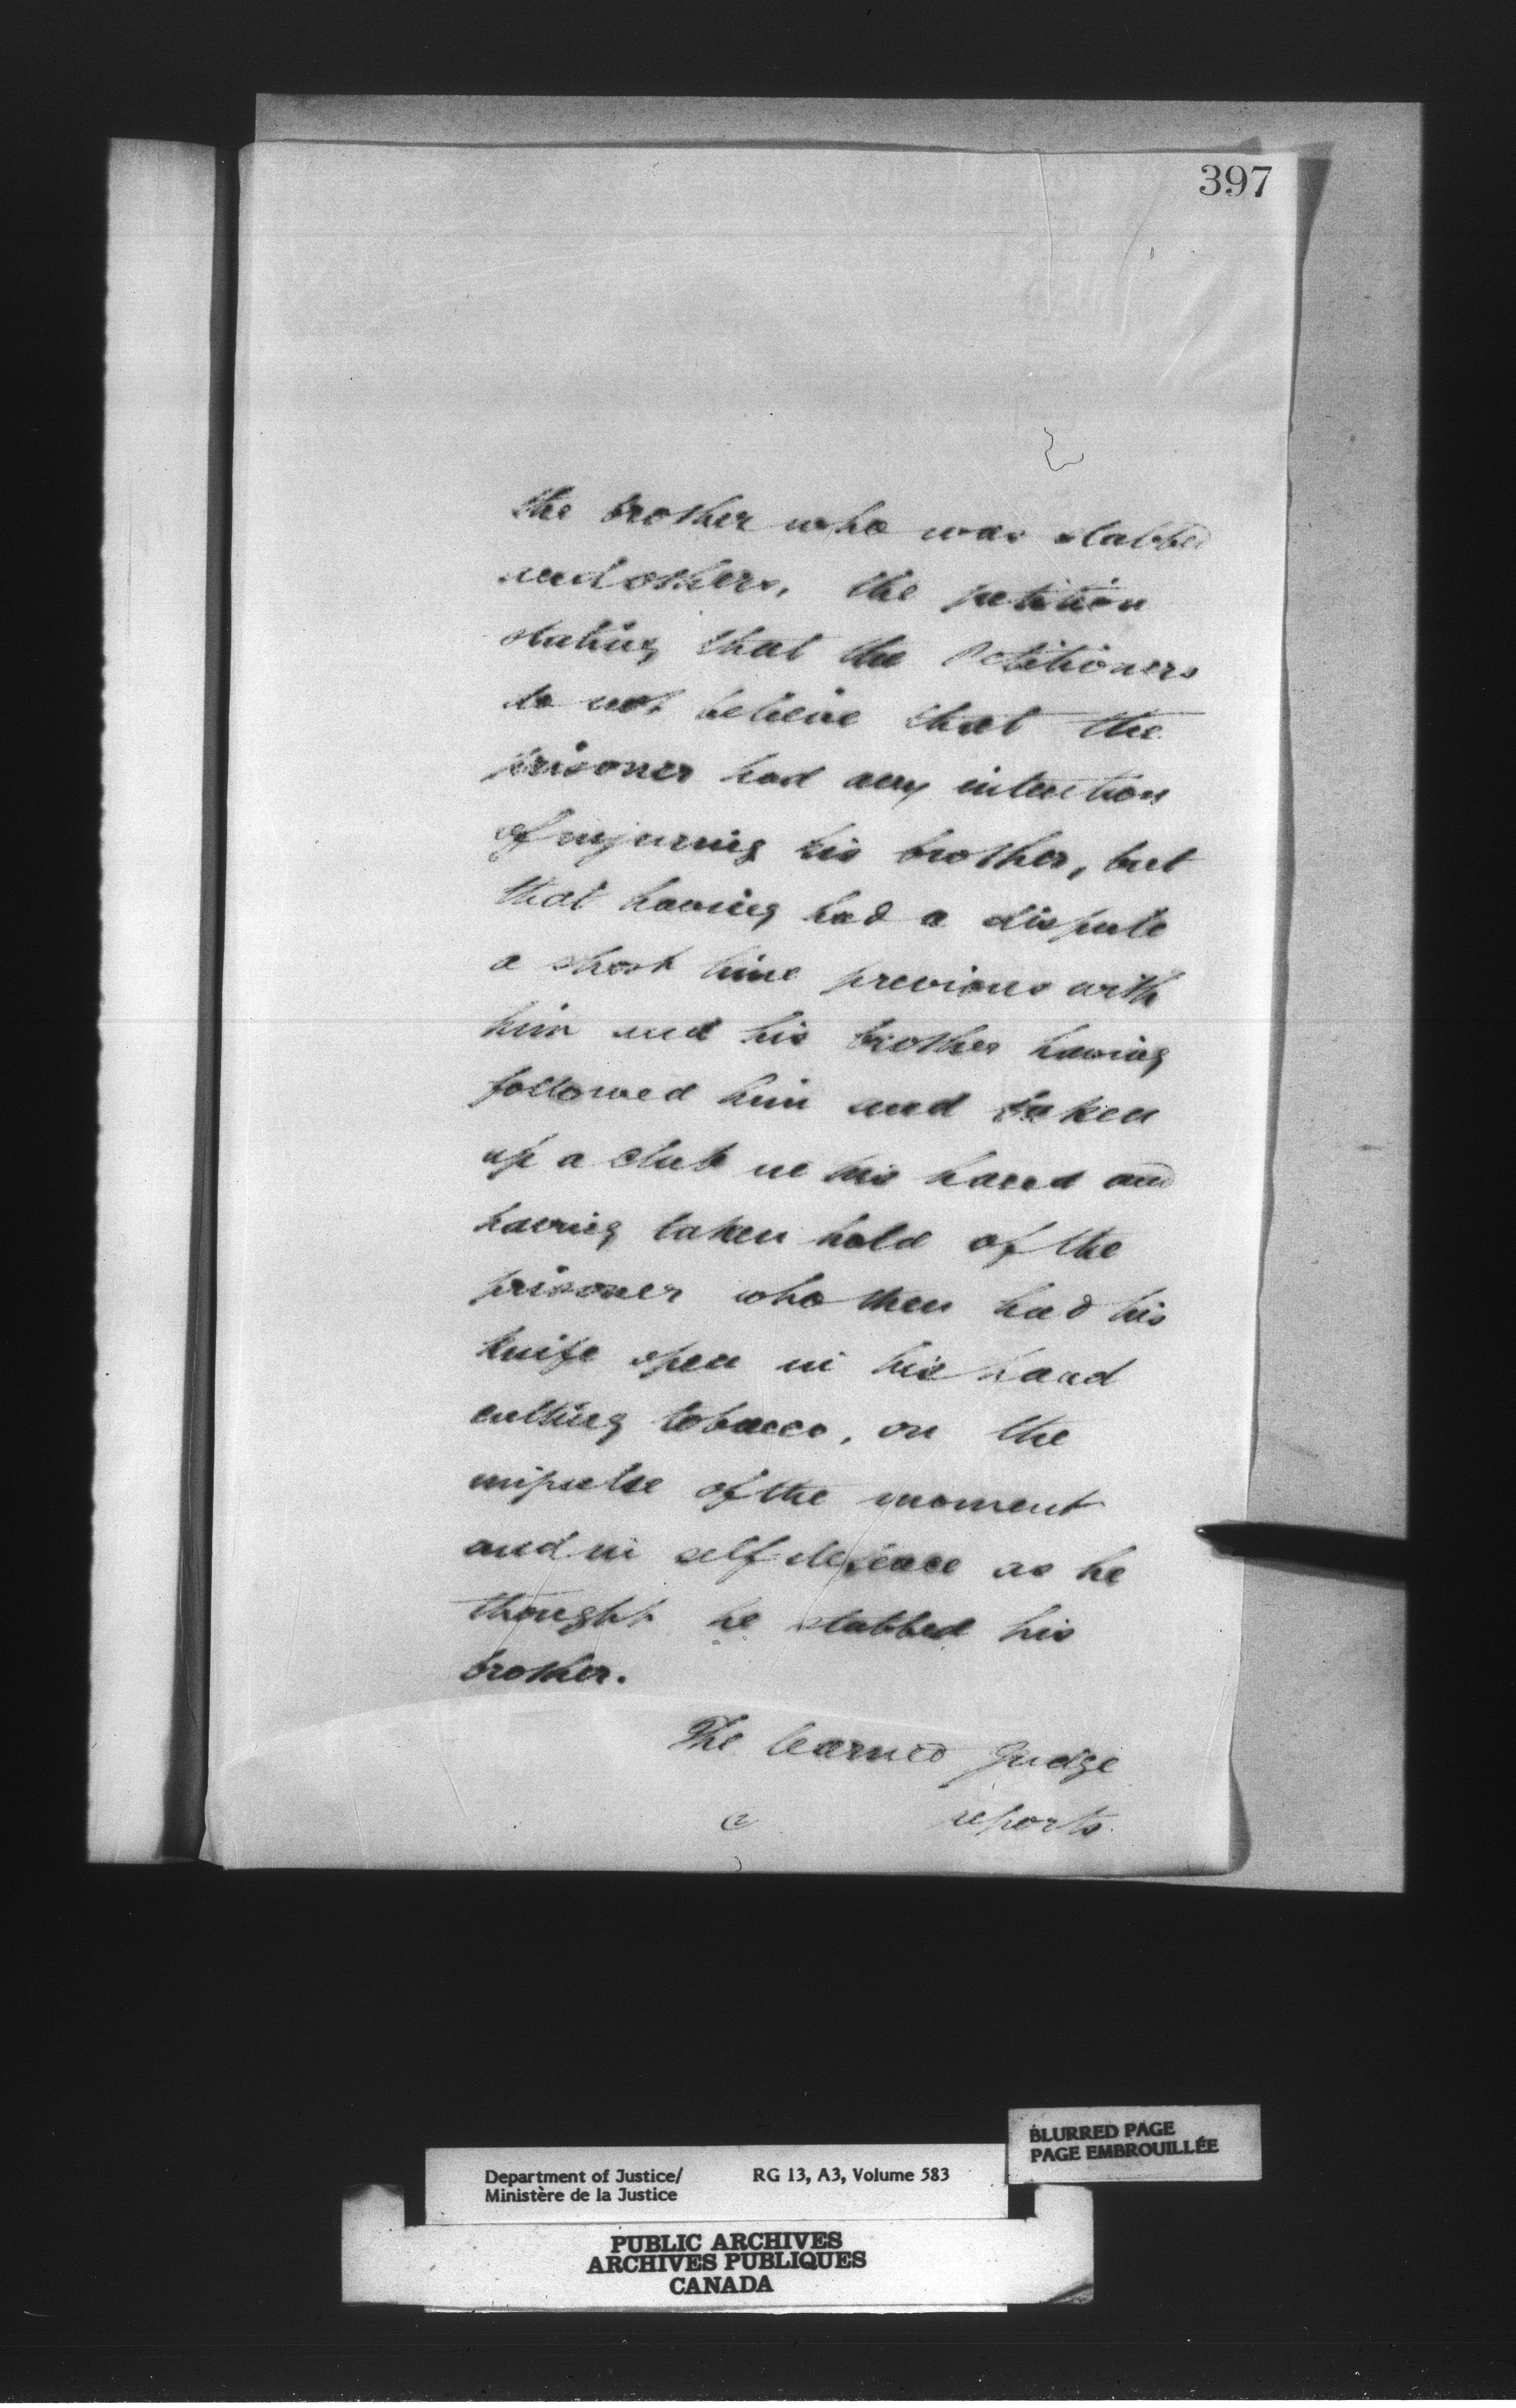 397
the brother who was stabbed
and others, the petition
stating that the Petitioners
do not believe that the
prisoner had any intention
of injuring his brother, but
that having had a dispute
a short time previous with
him and his brother having
followed him and taken
up a club in his hand and
having taken hold of the
prisoner who then had his
knife open in his hand
cutting tobacco, on the
impulse of the moment
and in self defence as he
thought he stabbed his
brother.
The learned Judge
reports
BLURRED PAGE
PAGE EMBROUILLÉE
Department of Justice/ RG 13, A3, Volume 583
Ministère de la Justice
PUBLIC ARCHIVES
ARCHIVES PUBLIQUES
CANADA